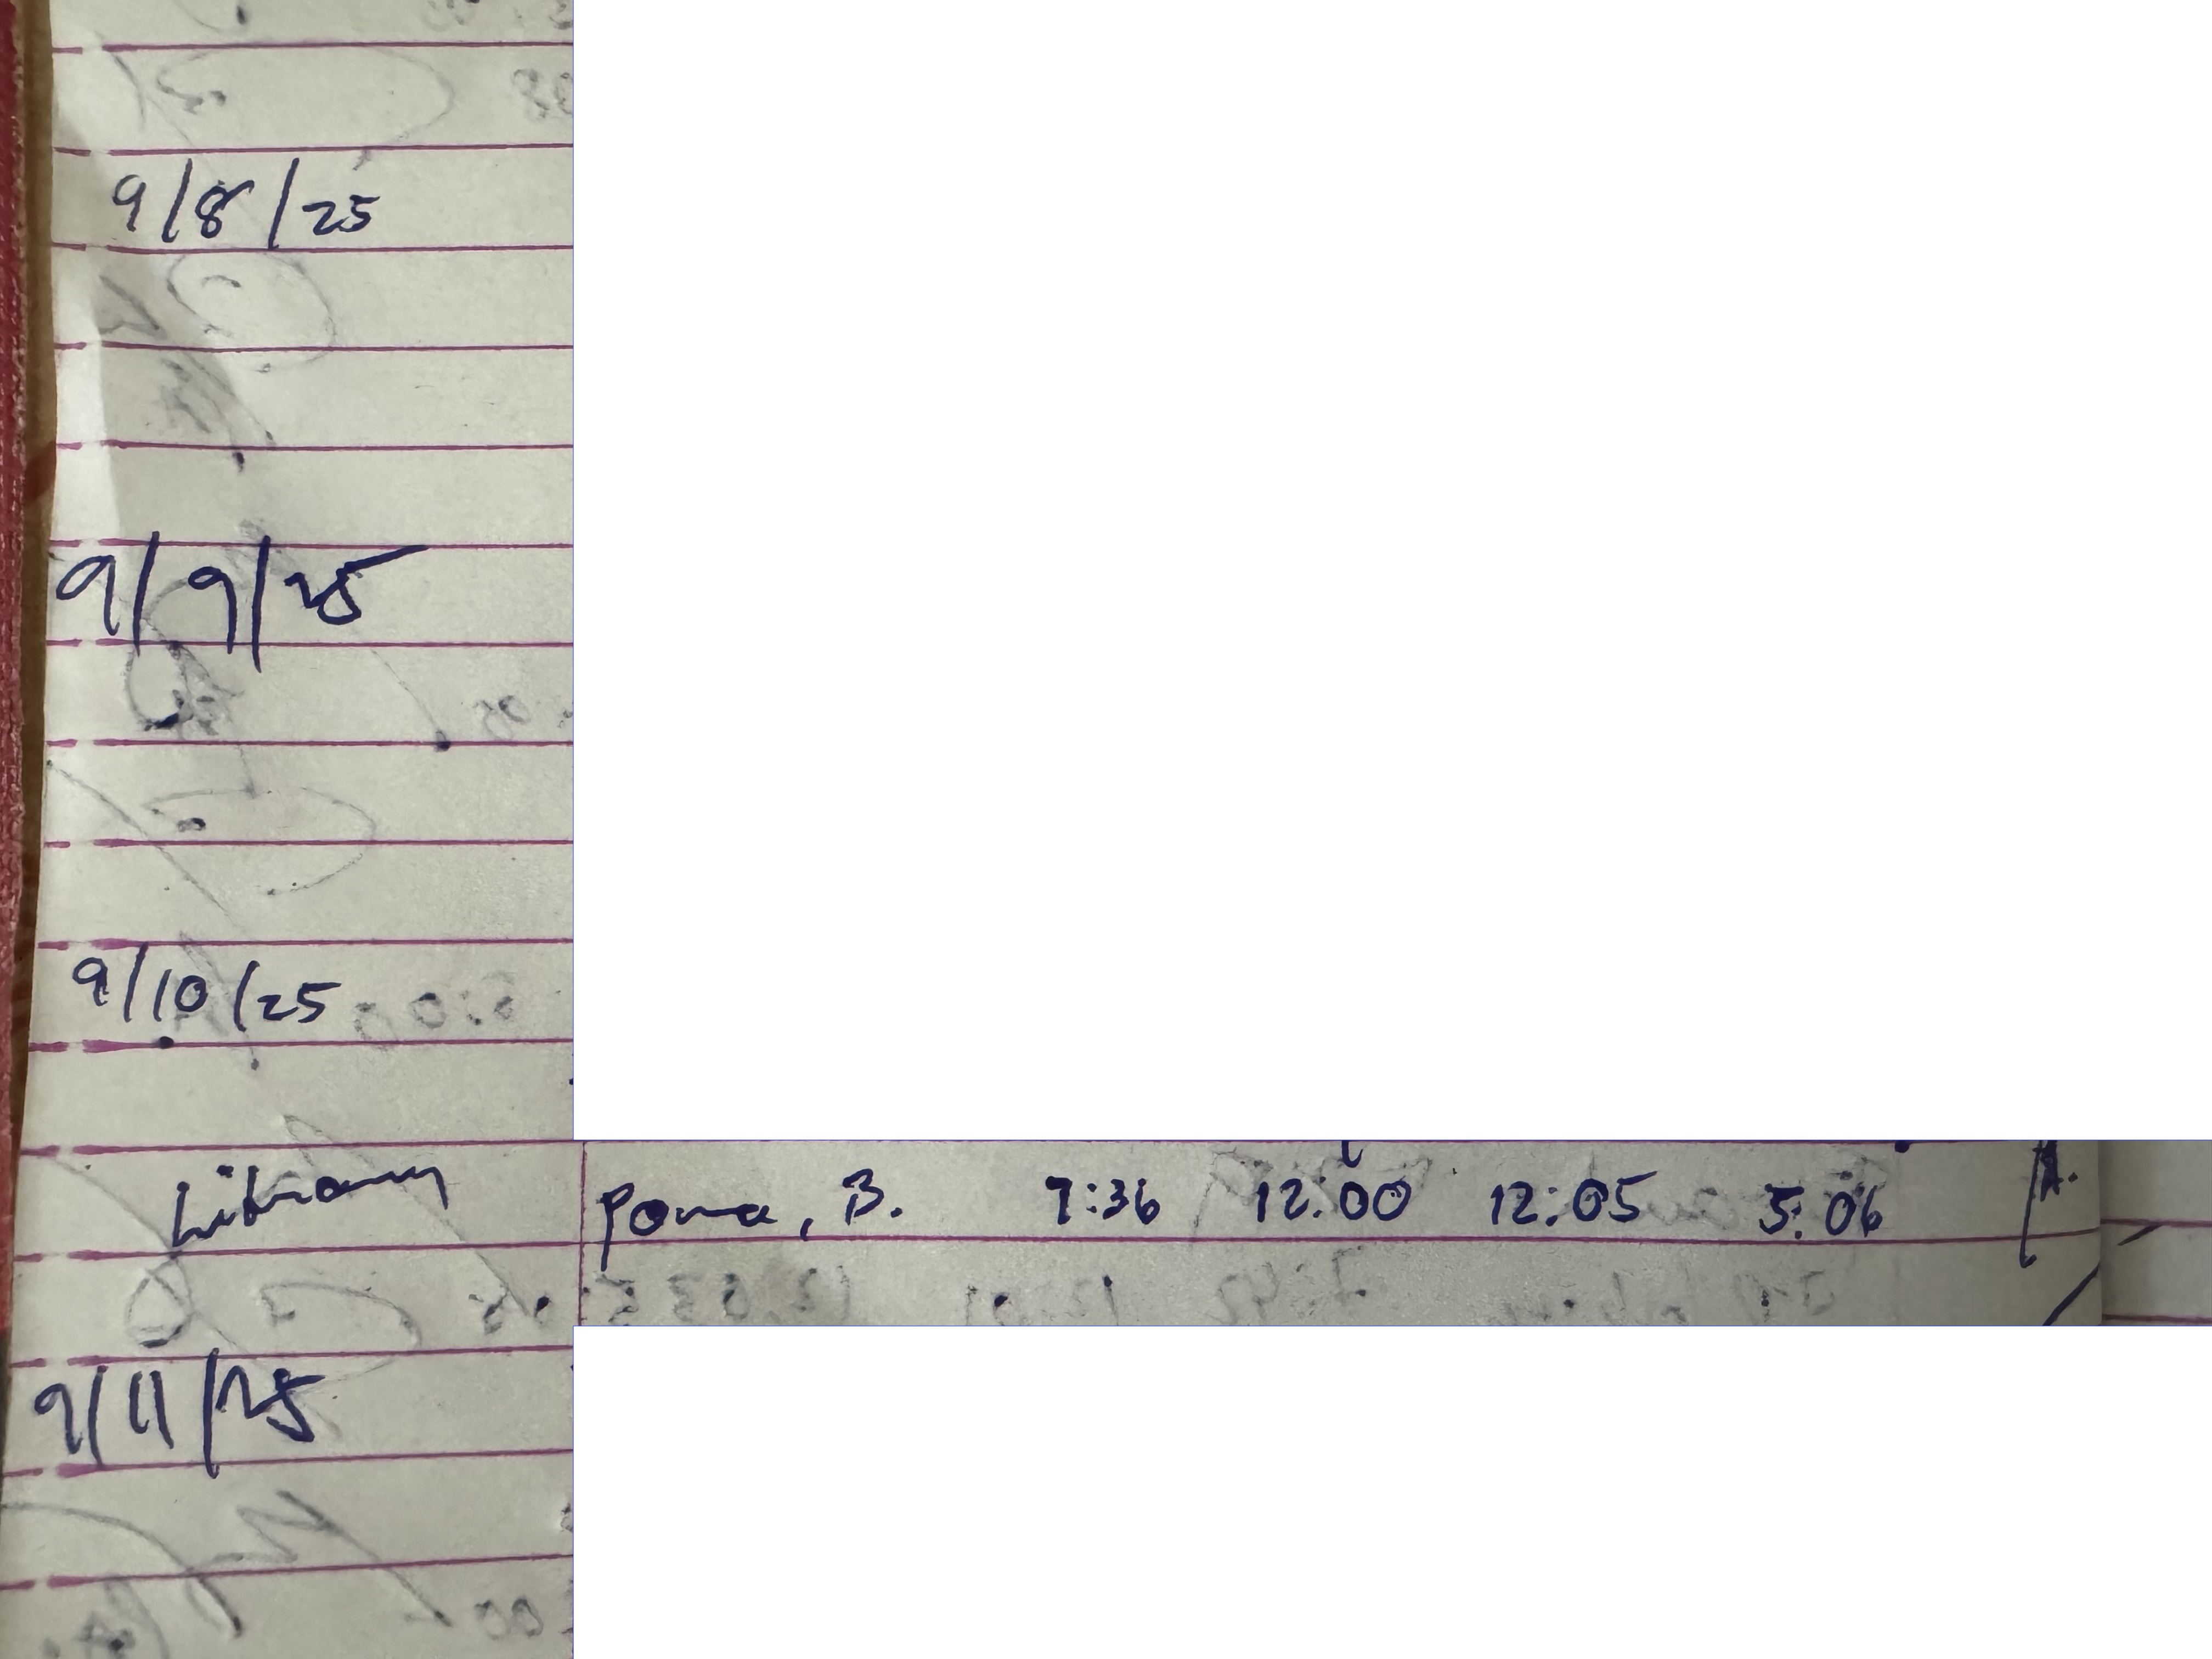 9/8/25
9/9/25
9/10/25
Library Poma, B. 7:36 12:00 12:05 5:06 A.
9/11/25